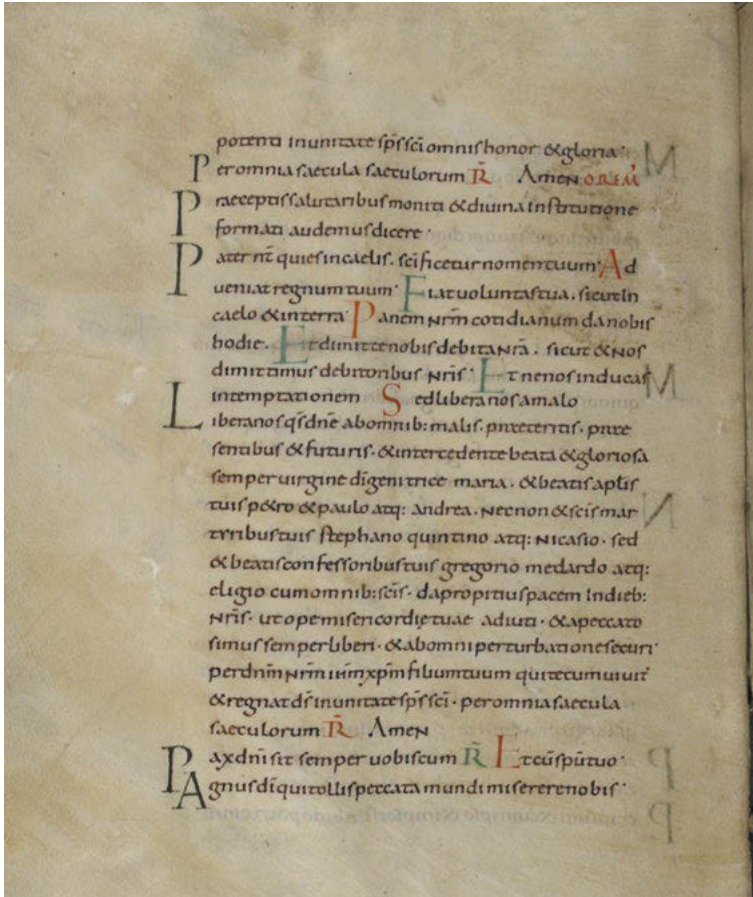 potenti inunitate sp̄s sc̄i omnishonor &gloria·
Peromnia saecula saeculorum R̄ Amen OREM̄
Praeceptissalutaribus moniti &divina institutione
formati audemusdicere·
Pater nr̄ quiesincaelis. sc̄ificetur nomentuum· Ad
veniat regnumtuum· Fiatvoluntastua. sicutin
caelo &interra· Panem nr̄m cotidianum danobis
hodie. Etdimittenobis debitanr̄a. sicut &nos
dimittimus debitoribus nr̄is· Et nenosinducas
intemptationem Sedliberanosamalo
Liberanosqs̄dn̄e abomnib: malis. praeteritis. prae
sentibus &futuris. &intercedente beata &gloriosa
semperuirgine dīgenitrice maria. &beatisapl̄is
tuis p&ro &paulo atq: andrea. necnon &sc̄is mar
tyribustuis stephano quintino atq: nicasio. sed
&beatisconfessoribustuis gregorio medardo atq:
eligio cumomnib: sc̄is. dapropitiuspacem indieb:
nr̄is. utopemisericordiętuae adiuti. &apeccato
simussemperliberi. &abomniperturbationesecuri·
perdn̄m nr̄m ih̄m xp̄m filiumtuum quitecumuiuit
&regnat ds̄ inunitatesp̄s sc̄i. peromniasaecula
saeculorum R̄ Amen
Paxdn̄i sit semper uobiscum R̄ Etcūsp̄utuo·
Agnusdīquitollispeccata mundimiserere nobis·